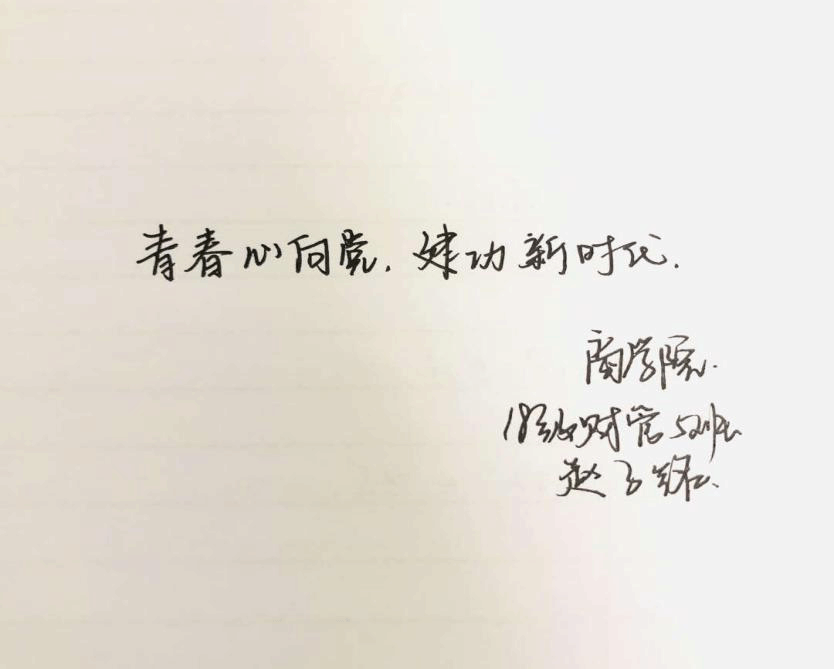 青春心向党，建功新时代.
商学院.
18级财管
赵子